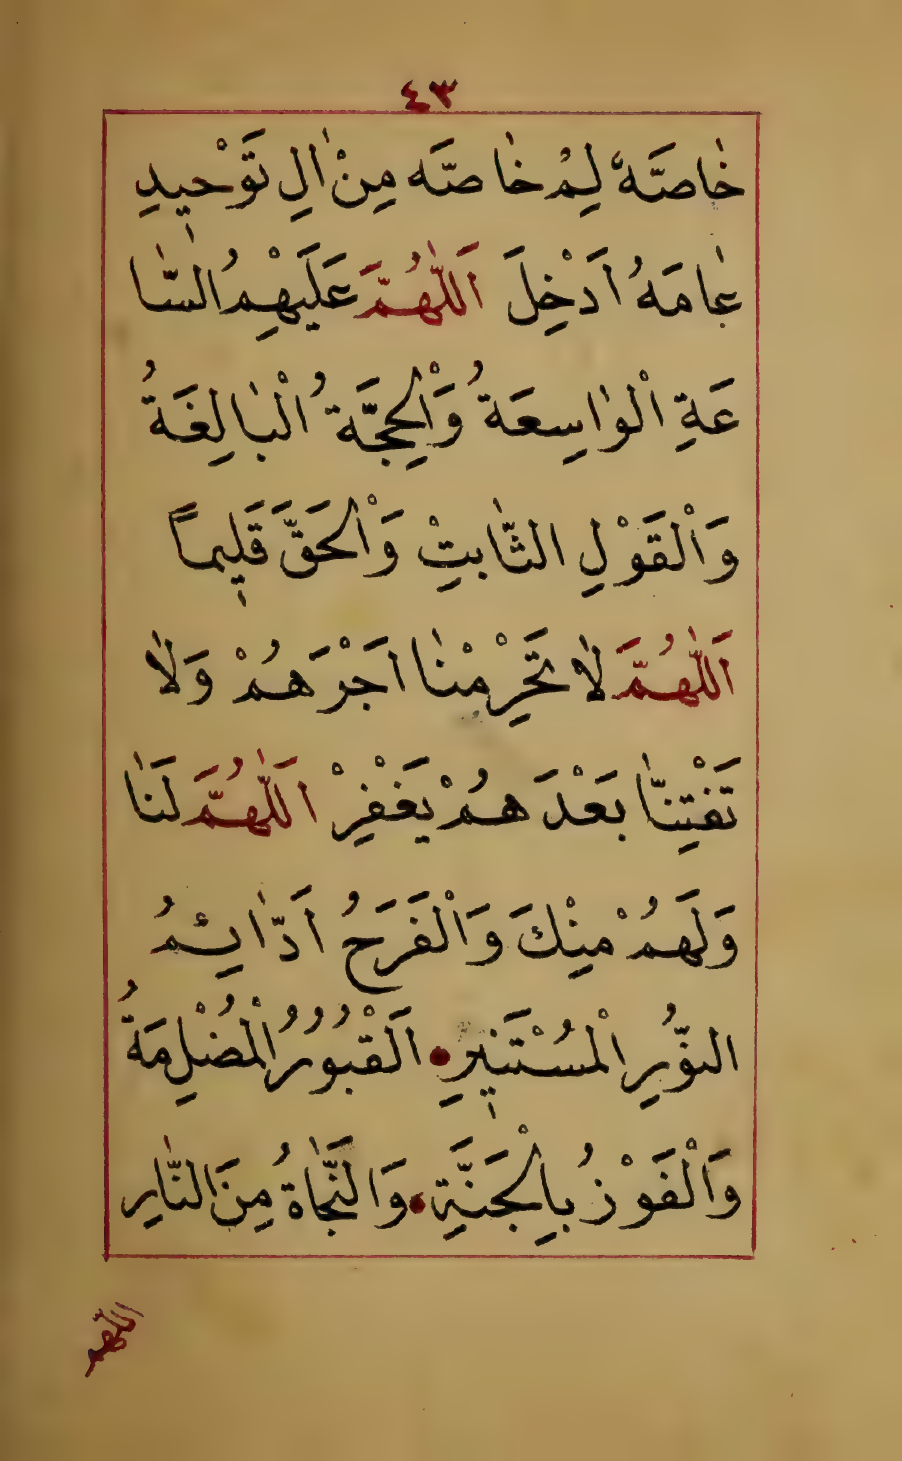 ٤٣
خٰاصَّهْ لِمُ خٰاصَّه مِنْ اٰلِ تَوْحٖيدِ
عٰامَهُ اَدْخِلَ اَللّٰهُمَّ عَلَيْهِمُ السّٰا
عَةِ الْوٰاسِعَةُ وَالْحِجَّةُ الْبٰالِغَةُ
وَالْقَوْلِ الثّٰابِتِْ وَالْحَقَّ قَلٖيماً
اَللّٰهُمَّ لٰا تَحْرِمْنٰا اَجْرَهُمْ وَلٰا
تَفْتِنّٰا بَعْدَ هُمْ يَغْفِرْ اَللّٰهُمَّ لَنٰا
وَلَهُمْ مِنْكَ وَالْفَرَحُ اَدّٰائِمُ
النُّوِّرِ الْمُسْتَنٖيرِ اَلْقُبُوُرُ الْمُضْلِمَةُ
وَالْفَوْزُ بِالْجَنَّةِ وَالنَّجٰاةُ مِنَ النّٰارِ
اللّهم